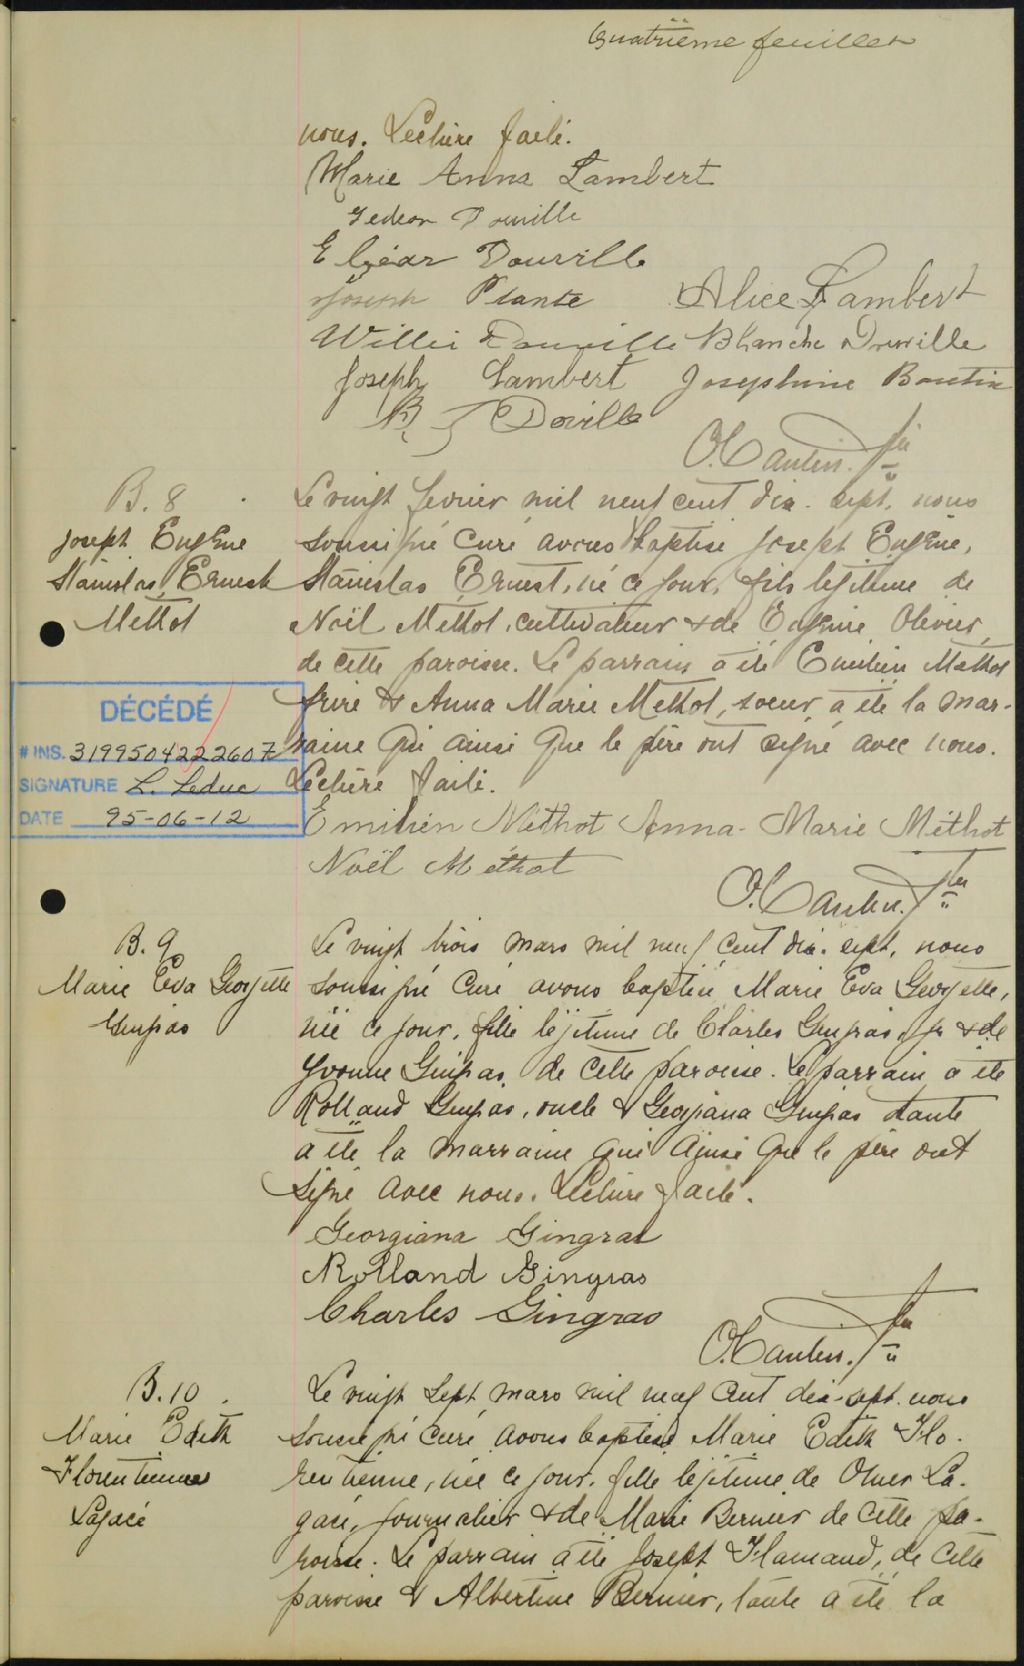 Quatrième feuillet
nous. Lecture faite.
Marie Anna Lambert
Gedeon Douville
Elzéar Douville
Joseph Plante Alice Lambert
Willie Douville Blanche Douville
Joseph Lambert Josephine Boutin
Doville
B. 8
Joseph Eugène
Stanislas Ernest
Methot
Le vingt fevrier mil neuf cent dix-sept, nous
soussigné curé avons baptisé Joseph Eugène,
Stanislas Ernest, né ce jour, fils legitime de
Noël Methot, cultivateur & de Eugénie Olivier,
de cette paroisse. Le parrain a été Emilien Methot
frère & Anna Marie Methot, soeur, a été la mar-
raine qui ainsi que le père ont signé avec nous.
Lecture faite.
DÉCÉDÉ
# INS. 3199504222607
SIGNATURE L. Leduc
DATE 95-06-12
Emilien Méthot Anna-Marie Méthot
Noël Méthot
B. 9
Marie Eva Georgette
Gingras
Le vingt trois mars mil neuf cent dix-sept, nous
soussigné curé avons baptisé Marie Eva Georgette,
née ce jour, fille légitime de Charles Gingras, & de
Yvonne Gingras, de cette paroisse. Le parrain a été
Rolland Gingras, oncle & Georgiana Gingras tante
a été la marraine qui ainsi que le père ont
signé avec nous. Lecture faite.
Georgiana Gingras
Rolland Gingras
Charles Gingras
B. 10
Marie Edith
Florentienne
Lagacé
Le vingt sept mars mil neuf cent dix-sept nous
soussigné curé avons baptisé Marie Edith Flo-
rentienne, née ce jour, fille legitime de Omer La-
gacé, journalier & de Marie Bernier de cette pa-
roisse. Le parrain a été Joseph Flamand, de cette
paroisse & Albertine Bernier, tante a été la